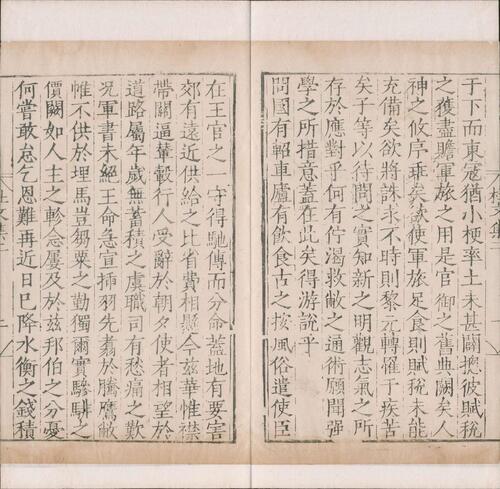 于下而東寇猶小梗率土未甚闢揔彼賦稅
之獲盡贍軍旅之用是官御之舊典闕矣人
神之攸序乖矣欲使軍旅足食則賦稅未能
充備矣欲將誅求不時則黎元轉罹于疾苦
矣子等以待問之實知新之明觀志氣之所
存於應對乎何有佇渴救敝之通術願聞強
學之所措意蓋在此矣得游說乎
問國有軺車廬有飲食古之按風俗遣使臣
在王官之一守得馳傳而分命蓋地有要害
郊有遠近供給之比省費相懸今茲華惟襟
帶關逼輦轂行人受辭於朝夕使者相望於
道路屬年歲無蓄積之虞職司有愁痛之歎
況軍書未絕王命急宣插羽先翥於騰鷹敝
帷不供於埋馬豈芻粟之勤獨爾實驂騑之
價闕如人主之軫念屢及於茲邦伯之分憂
何嘗敢怠乞恩難再近日已降水衡之錢積